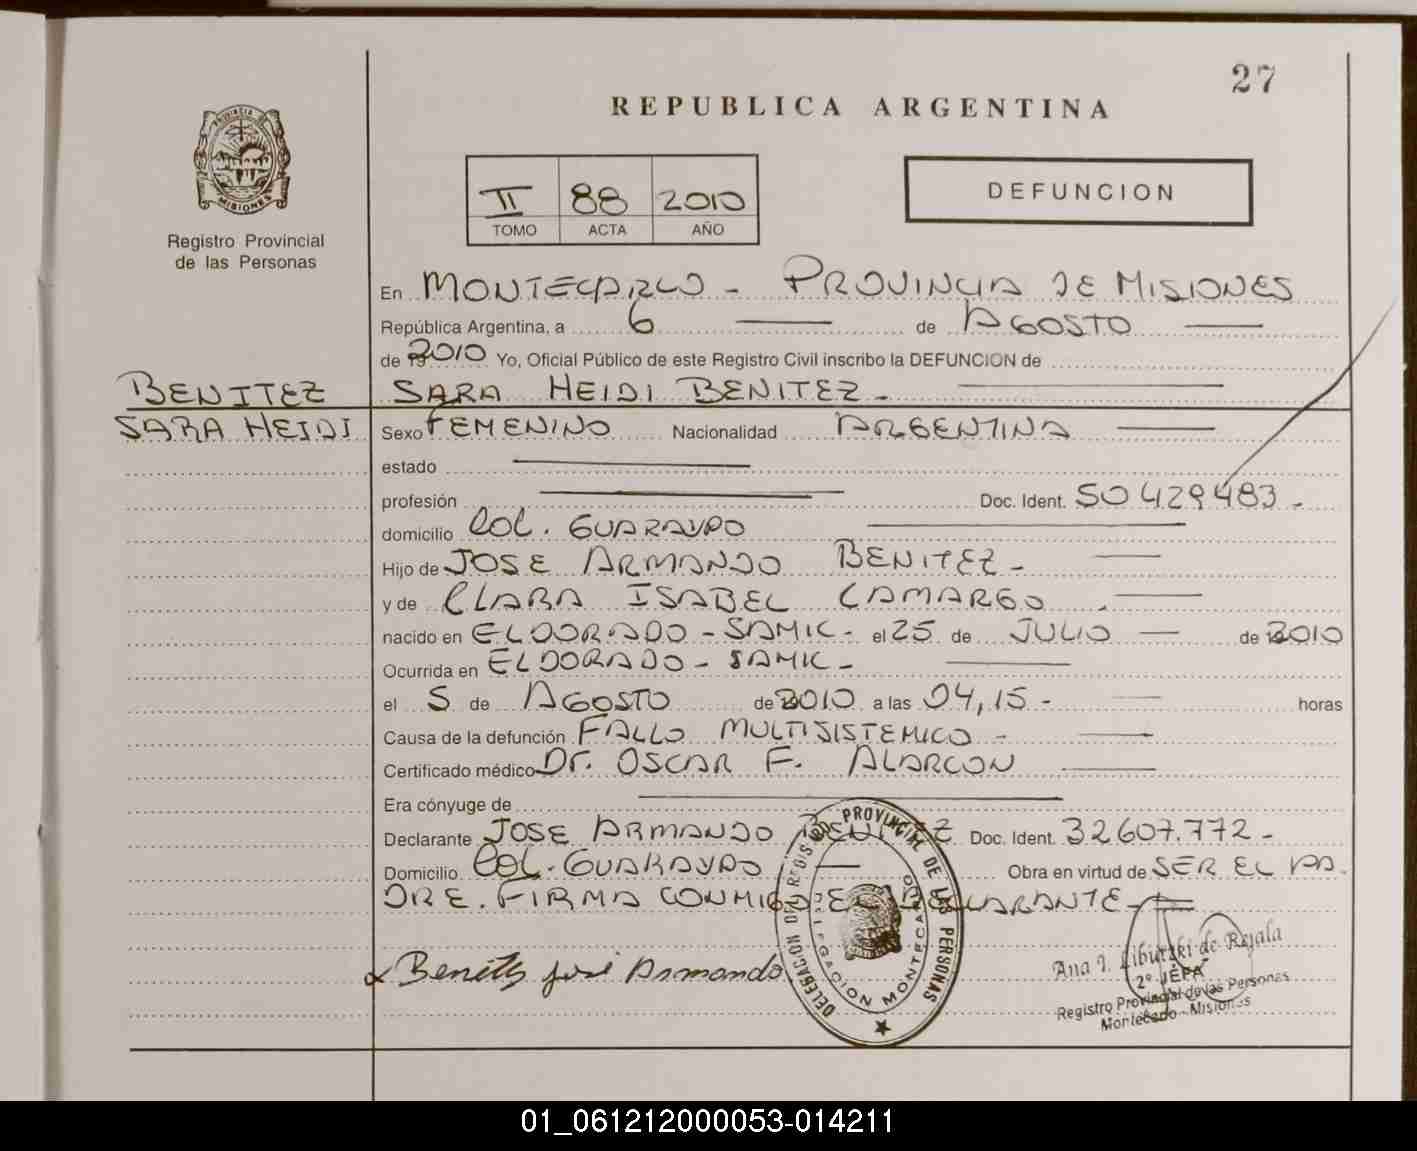 27
REPUBLICA ARGENTINA
PROVINCIA DE
MISIONES
Registro Provincial
de las Personas
II 88 2010
TOMO ACTA AÑO
DEFUNCION
En MONTECARLO - PROVINCIA DE MISIONES
República Argentina, a 6 de AGOSTO
de 2010 Yo, Oficial Público de este Registro Civil inscribo la DEFUNCION de
BENITEZ SARA HEIDI BENITEZ -
SARA HEIDI Sexo FEMENINO Nacionalidad ARGENTINA
estado
profesión Doc. Ident. 50429483 -
domicilio COL. GUARAYPO
Hijo de JOSE ARMANDO BENITEZ -
y de CLARA ISABEL CAMARGO .
nacido en ELDORADO - SAMIC - el 25 de JULIO de 2010
Ocurrida en ELDORADO - SAMIC -
el 5 de AGOSTO de 2010 a las 04,15 - horas
Causa de la defunción FALLO MULTISISTEMICO -
Certificado médico Dr. OSCAR F. ALARCON
Era cónyuge de
Declarante JOSE ARMANDO BENITEZ Doc. Ident. 32607.772 -
Domicilio COL. GUARAYPO Obra en virtud de SER EL PA-
DRE. FIRMA CONMIGO EL DECLARANTE -
Benitez José Armando
DELEGACION DEL REGISTRO PROVINCIAL DE LAS PERSONAS
DELEGACION MONTECARLO
Ana I. de Rejala
2° JEFA
Registro Provincial de las Personas
Montecarlo - Misiones
01_061212000053-014211